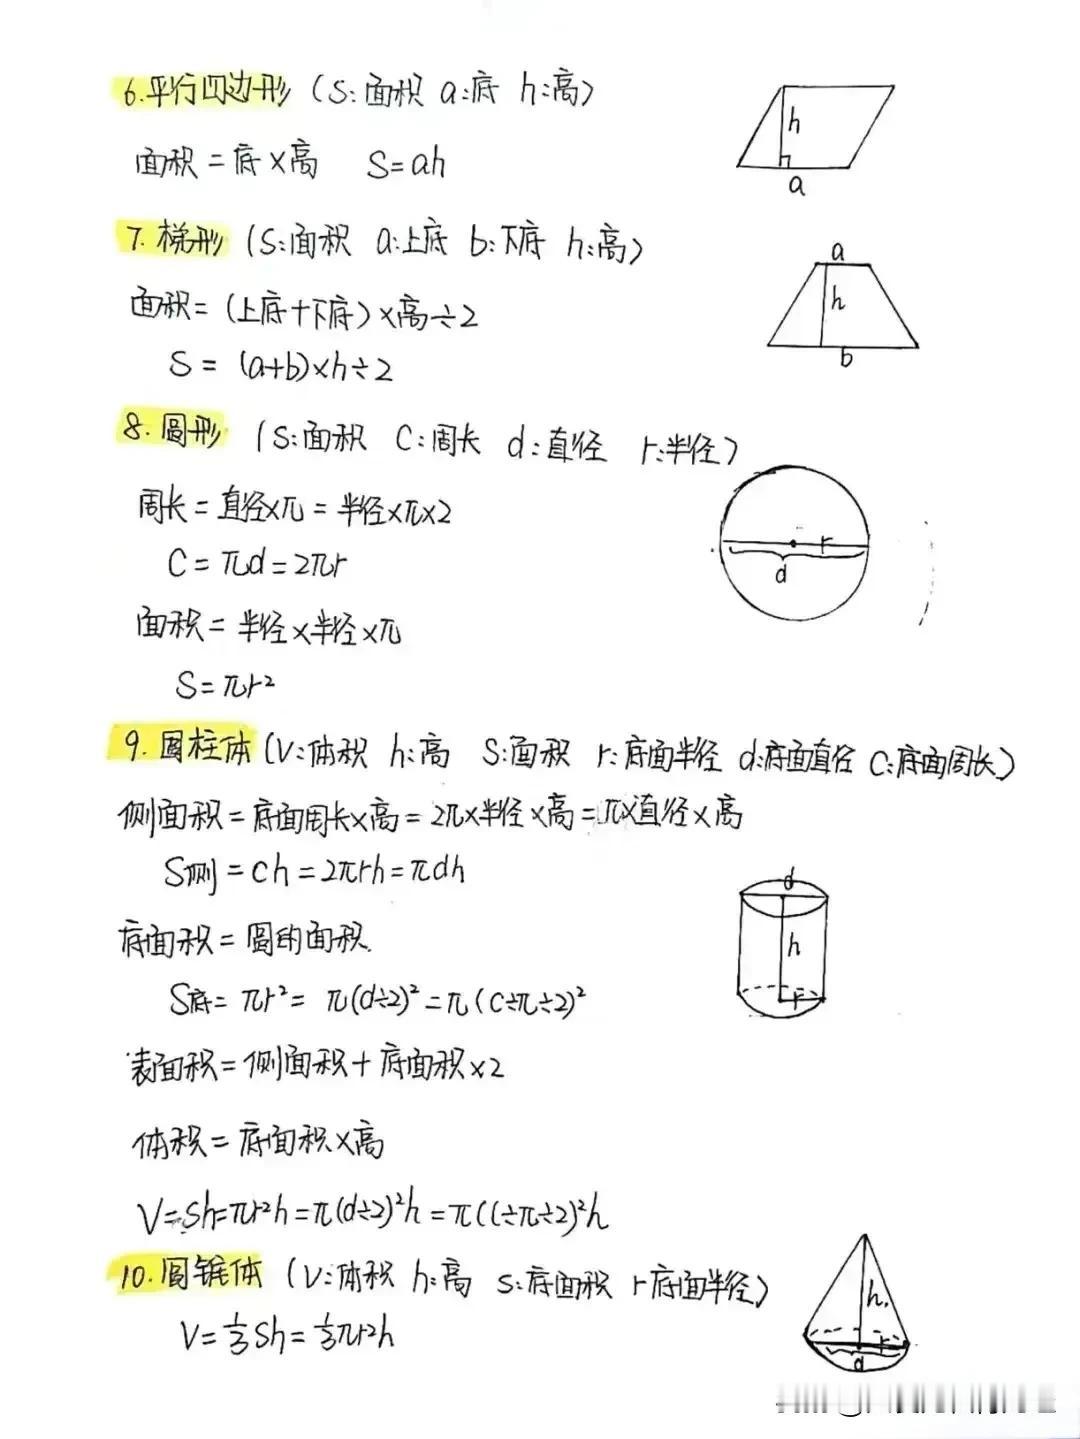 6.平行四边形 (S:面积 a:底 h:高)
面积=底×高 S=ah
h
a
7.梯形 (S:面积 a:上底 b:下底 h:高)
面积=(上底+下底)×高÷2
S=(a+b)×h÷2
a
h
b
8.圆形 (S:面积 C:周长 d:直径 r:半径)
周长=直径×π=半径×π×2
C=πd=2πr
面积=半径×半径×π
S=πr²
r
d
9.圆柱体(V:体积 h:高 S:面积 r:底面半径 d:底面直径 C:底面周长)
侧面积=底面周长×高=2π×半径×高=π×直径×高
S侧=ch=2πrh=πdh
底面积=圆的面积.
S底=πr²=π(d÷2)²=π(c÷π÷2)²
表面积=侧面积+底面积×2
体积=底面积×高
V=Sh=πr²h=π(d÷2)²h=π(C÷π÷2)²h
d
h
r
10.圆锥体 (V:体积 h:高 S:底面积 r底面半径)
V=⅓Sh=⅓πr²h
h
r
d